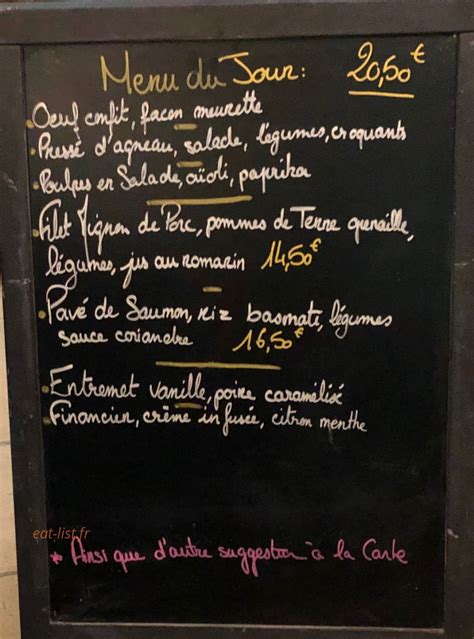 Menu du Jour: 20,50€
Oeuf confit, façon meurette
Pressé d'agneau, salade, légumes, croquants
Poulpes en Salade, aïoli, paprika
Filet Mignon de Porc, pommes de Terre grenaille,
légumes, jus au romarin 14,50€
Pavé de Saumon, riz basmati, légumes
sauce coriandre 16,50€
Entremet vanille, poire caramélisé
Financien, crème infusée, citron menthe
eat-list.fr
* Ainsi que d'autre suggestion à la Carte